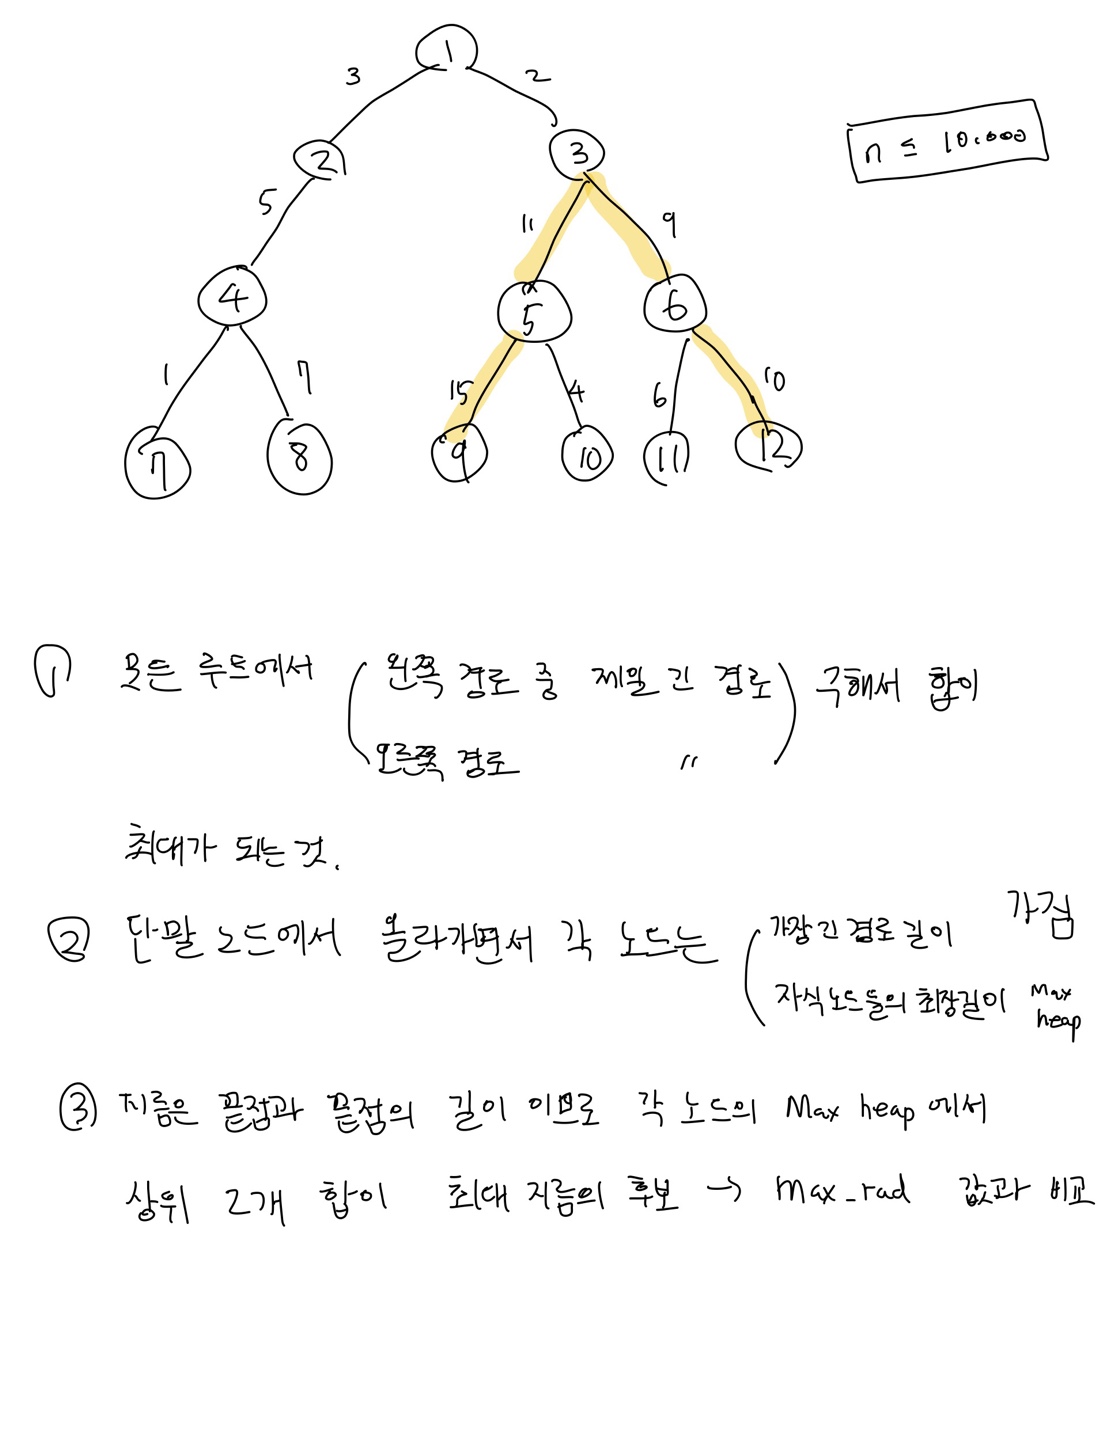 1
3 2
2 3
n ≤ 10.000
5 11 9
4 5 6
1 7 15 4 6 10
7 8 9 10 11 12
① 모든 루트에서 ( 왼쪽 경로 중 제일 긴 경로 ) 구해서 합이
오른쪽 경로 〃
최대가 되는 것.
② 단말 노드에서 올라가면서 각 노드는 ( 가장 긴 경로 길이 가짐
자식노드들의 최장길이 Max heap
③ 지름은 끝점과 끝점의 길이 이므로 각 노드의 Max heap에서
상위 2개 합이 최대 지름의 후보 → max_rad 값과 비교